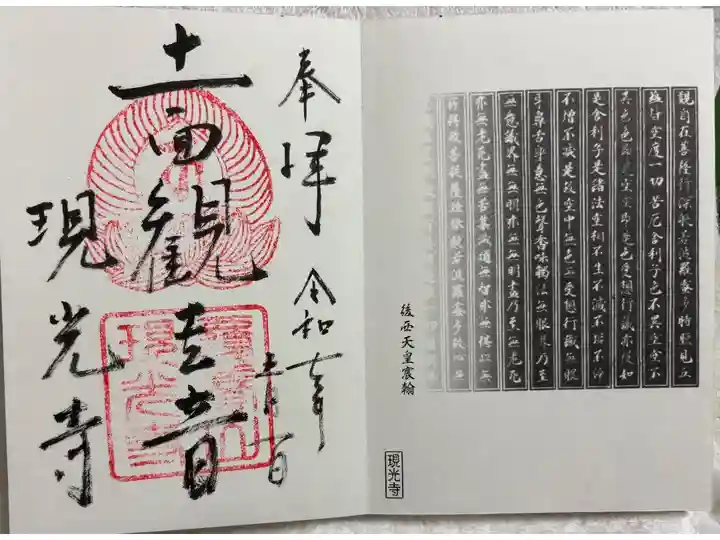 観自在菩薩行深般若波羅蜜多時照見五
蘊皆空度一切苦厄舎利子色不異空空不
異色色即是空空即是色受想行識亦復如
是舎利子是諸法空相不生不滅不垢不浄
不増不減是故空中無色無受想行識無眼
耳鼻舌身意無色聲香味觸法無眼界乃至
無意識界無無明亦無無明盡乃至無老死
亦無老死盡無苦集滅道無智亦無得以無
所得故菩提薩埵依般若波羅蜜多故心無
後西天皇宸翰
現光寺
奉拝
令和七年
十一面観世音
現光寺